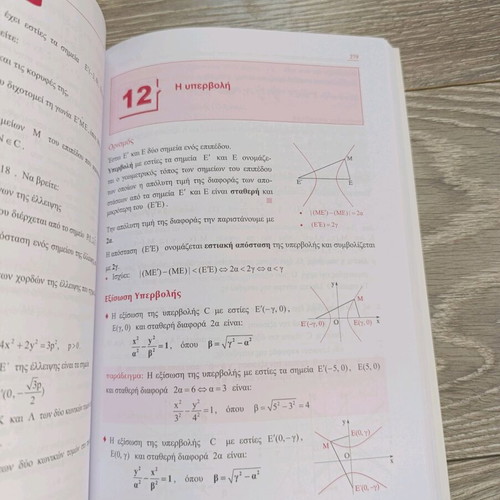 έχει εστίες τα σημεία
είτε:
και τις κορυφές της.
διχοτομεί τη γωνία
μείων Μ του επιπέδου
Ν ∈ C.
18. Να βρείτε:
της έλλειψης
διέρχεται από το σημείο
σημείου της έλλειψης
των χορδών της έλλειψης
4x² + 2y² = 3p², p>0.
Ε΄ της έλλειψης είναι τα σημεία
Λ των δύο κωνικών
των δύο κωνικών τομών
279
12 Η υπερβολή
Ορισμός
Έστω Ε΄ και Ε δύο σημεία ενός επιπέδου.
Υπερβολή με εστίες τα σημεία Ε΄ και Ε ονομάζε-
ται ο γεωμετρικός τόπος των σημείων του επιπέδου
των οποίων η απόλυτη τιμή της διαφοράς των απο-
στάσεων από τα σημεία Ε΄ και Ε είναι σταθερή και
μικρότερη του (Ε΄Ε).
M
E΄ E
• |(ΜΕ΄) − (ΜΕ)| = 2α
• (Ε΄Ε) = 2γ
Την απόλυτη τιμή της διαφοράς την παριστάνουμε με
2α.
Η απόσταση (Ε΄Ε) ονομάζεται εστιακή απόσταση της υπερβολής και συμβολίζεται
με 2γ.
• Ισχύει: |(ΜΕ΄) − (ΜΕ)| < (Ε΄Ε) ⇔ 2α < 2γ ⇔ α < γ
Εξίσωση Υπερβολής
♦ Η εξίσωση της υπερβολής C με εστίες Ε΄(−γ, 0),
Ε(γ, 0) και σταθερή διαφορά 2α είναι:
x²/α² − y²/β² = 1, όπου β = √(γ² − α²)
y
M
E΄(−γ, 0) O E(γ, 0) x
παράδειγμα: Η εξίσωση της υπερβολής με εστίες τα σημεία Ε΄(−5, 0), Ε(5, 0)
και σταθερή διαφορά 2α = 6 ⇔ α = 3 είναι:
x²/3² − y²/4² = 1, όπου β = √(5² − 3²) = 4
♦ Η εξίσωση της υπερβολής C με εστίες Ε΄(0, −γ),
Ε(0, γ) και σταθερή διαφορά 2α είναι:
y²/α² − x²/β² = 1, όπου β = √(γ² − α²)
y
E(0, γ)
M
O x
E΄(0, −γ)